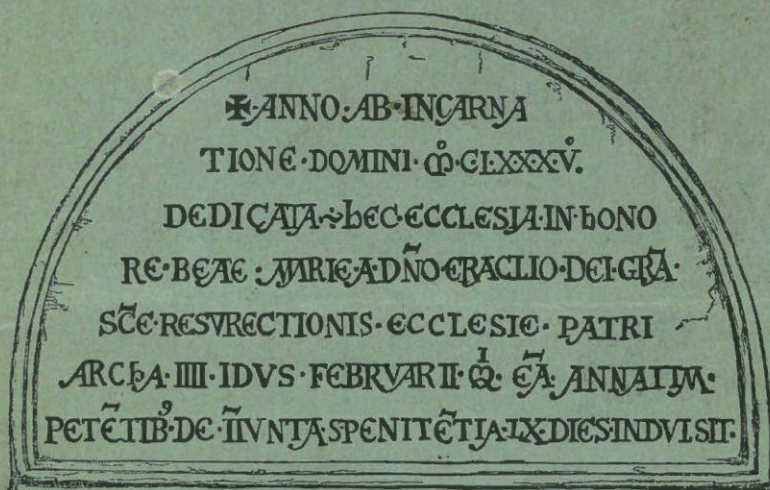 ✠·ANNO:AB·INCARNA
TIONE·DOMINI·M̊·CLXXXV̊.
DEDICATA·÷·hEC·ECCLESIA·IN·hONO
RE·BEAE:MARIE·A·DÑO·ERACLIO·DEI·GRÃ·
SC̃E·RESVRECTIONIS·ECCLESIE·PATRI
ARChA·IIII·IDVS·FEBRVARII·Q̇·EÃ·ANNATIM·
PETẼTIB9·DE·IĨVNTA·SPENITẼTIA·LX·DIES·INDVLSIT·